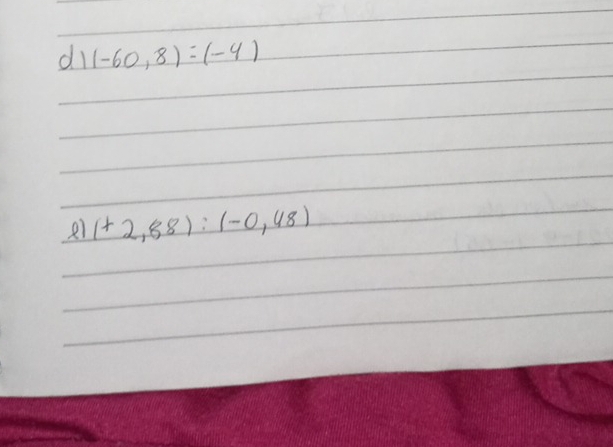 d) (-60,8) : (-4)
e) (+2,88) : (-0,48)